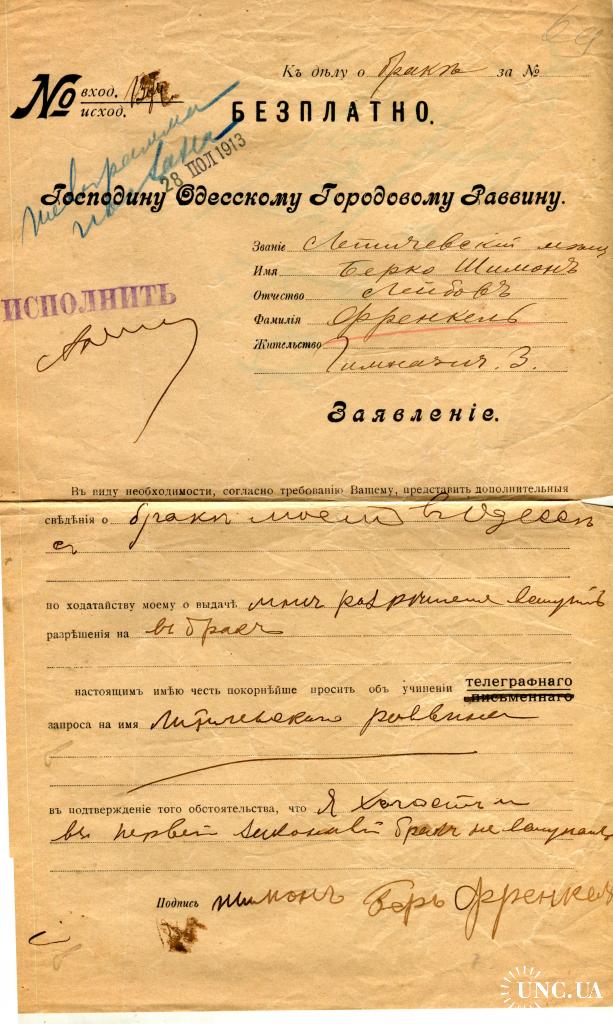 Къ дѣлу о бракѣ за №
№ вход.
исход.
БЕЗПЛАТНО.
телеграмма
послана
28 ІЮЛ 1913
Господину Одесскому Городовому Раввину.
Званіе Летичевскій мѣщ
Имя Берко Шимонъ
ИСПОЛНИТЬ
Отчество Лейбовъ
Фамилія Френкель
Жительство
Гимназич. 3.
Заявленіе.
Въ виду необходимости, согласно требованію Вашему, представить дополнительныя
свѣдѣнія о бракѣ моемъ въ Одесс
ѣ
по ходатайству моему о выдачѣ мнѣ разрѣшенія вступить
разрѣшенія на въ бракъ
настоящимъ имѣю честь покорнѣйше просить объ учиненіи телеграфнаго
письменнаго
запроса на имя Летичевскаго раввина
въ подтвержденіе того обстоятельства, что я холостъ и
въ первый законный бракъ не вступалъ
Подпись Шимонъ Беръ Френкель
UNC.UA